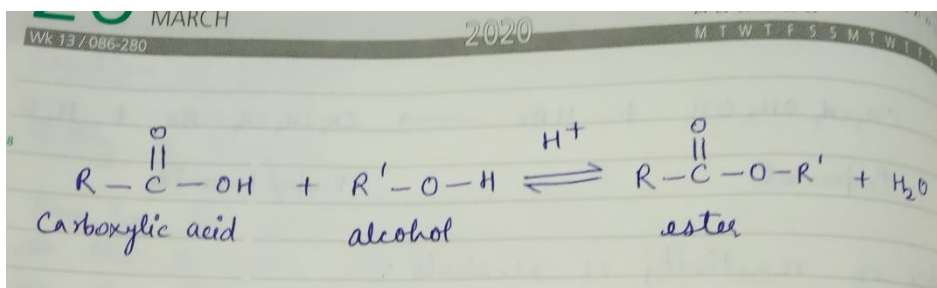 MARCH
Wk 13/086-280
2020
M T W T F S S M T W T F S
O O
R – C – OH + R' – O – H ⇌ R – C – O – R' + H₂O
H⁺
Carboxylic acid alcohol ester